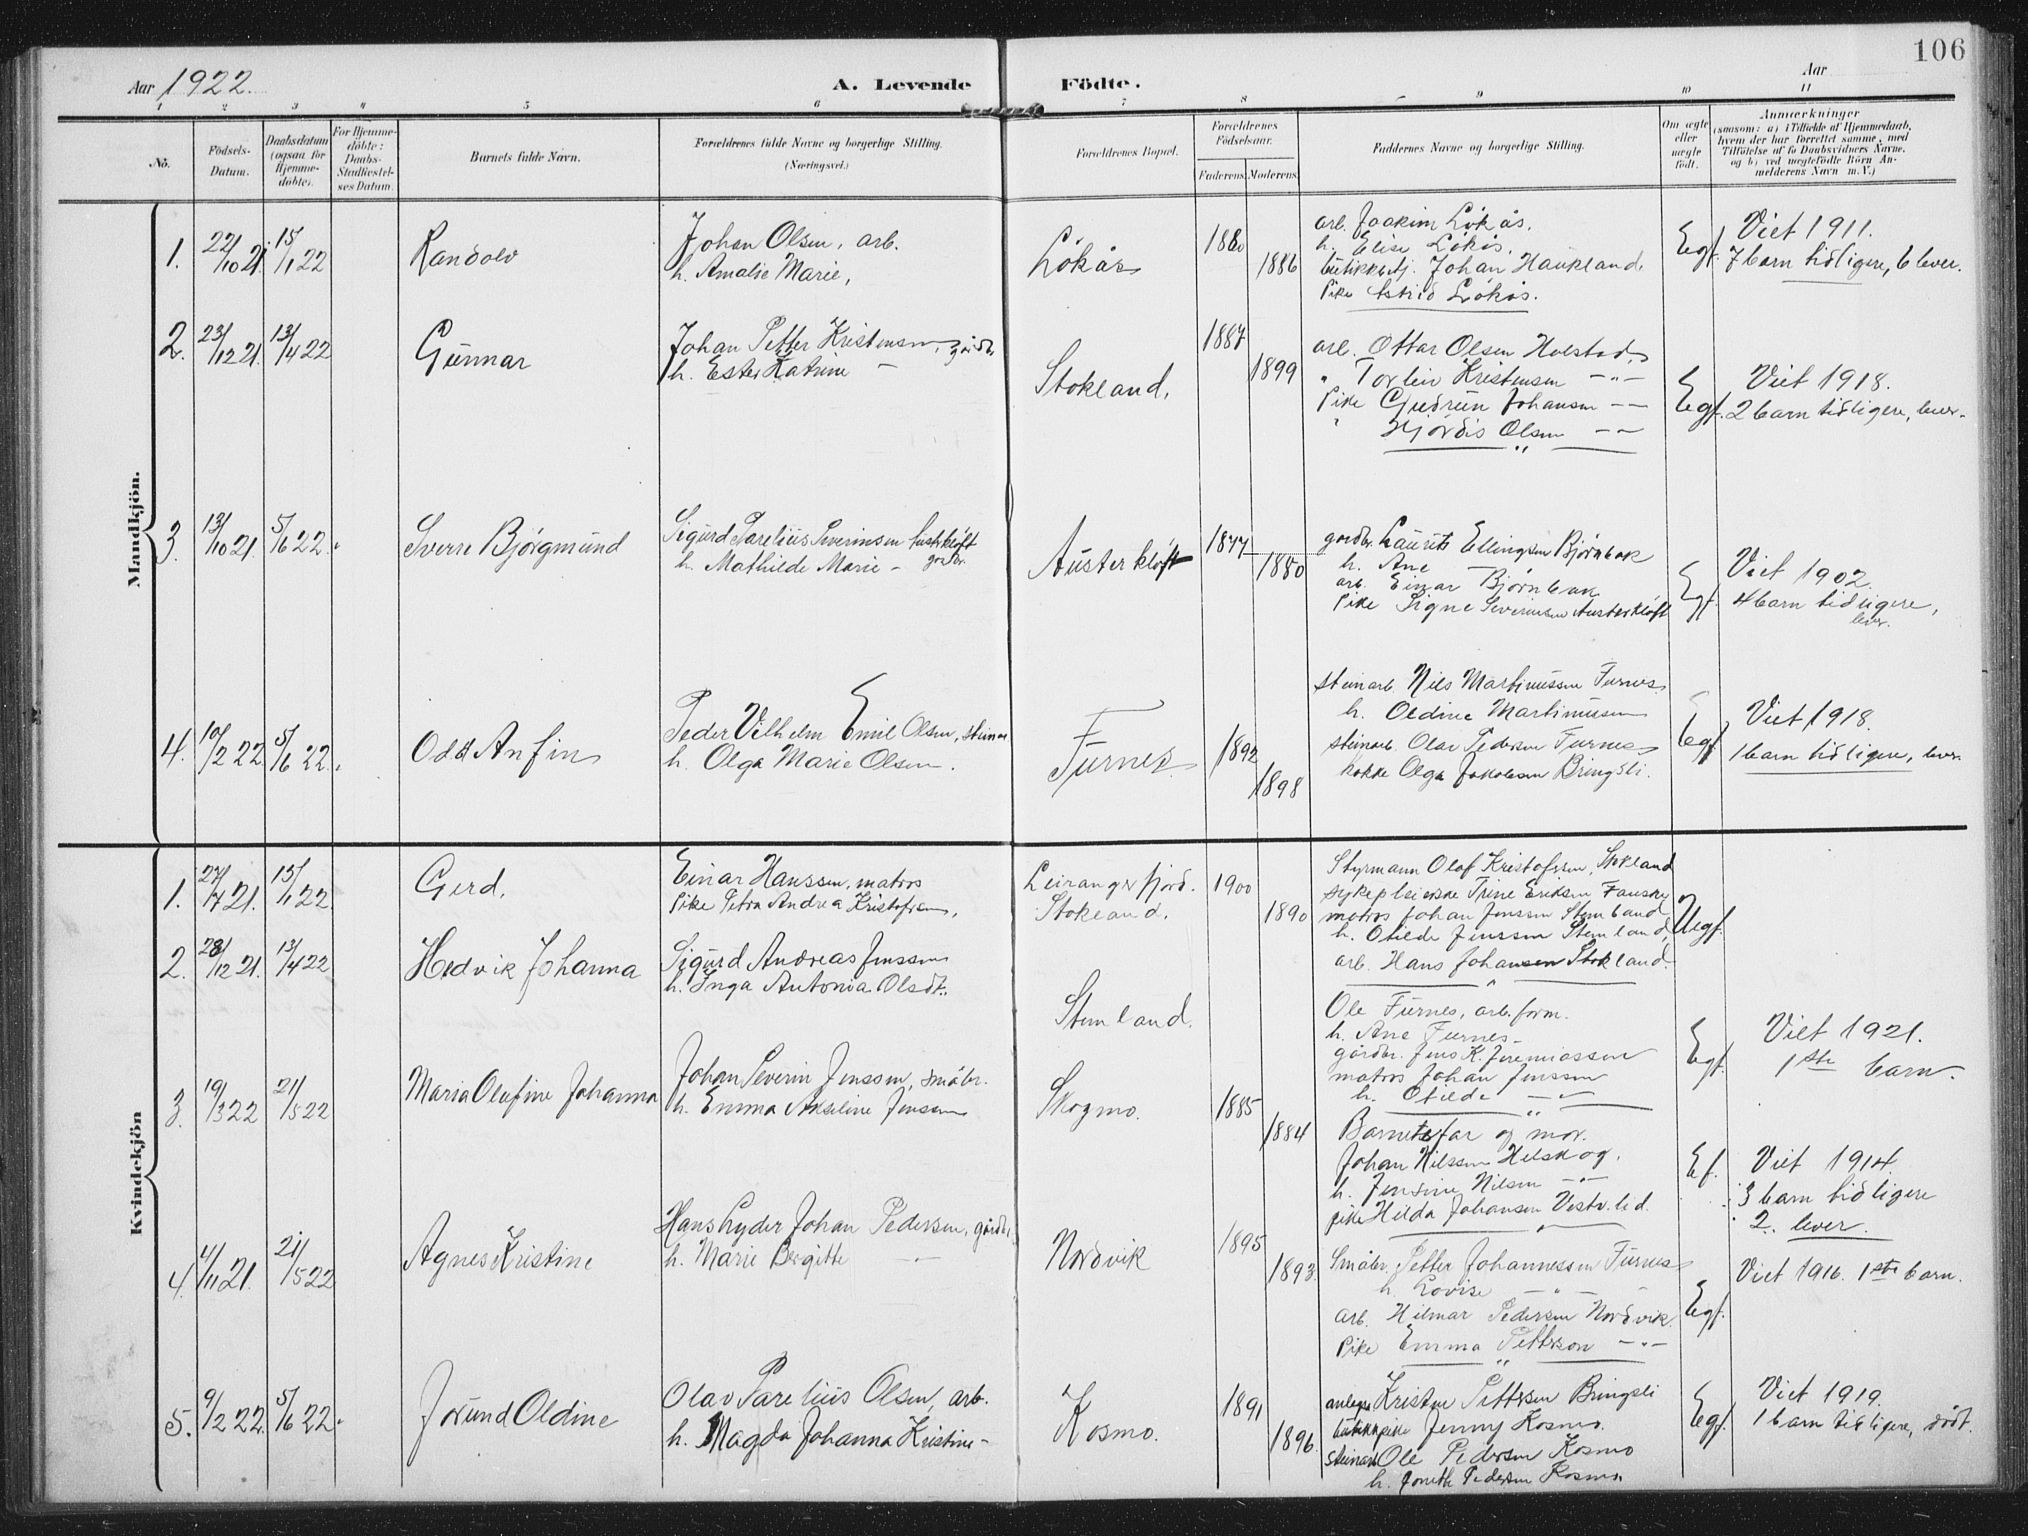 106
Aar 1922.
A. Levende Födte.
Aar
1 2 3 4 5 6 7 8 9 10 11
No.
Födsels-Datum.
Daabsdatum (ogsaa for Hjemme-döbte).
For Hjemme-döbte: Daabs-Stadfæstel-ses Datum.
Barnets fulde Navn.
Forældrenes fulde Navne og borgerlige Stilling.
(Næringsvei.)
Forældrenes Bopæl.
Forældrenes Födselsaar.
Faderens. Moderens.
Faddernes Navne og borgerlige Stilling.
Om ægte eller uægte födt.
Anmærkninger
(saasom: a) i Tilfælde af Hjemmedaab, hvem der har forrettet samme, med Tilföielse af to Daabsvidners Navne, og b) ved uægtefödte Börn An-melderens Navn m. V.)
Mandkjön.
1. 22/10 21. 15/1 22
Randolv
Johan Olsen, arb.
h. Amalie Marie,
Lökås
1880
1886
arb. Joakim Lökås.
h. Elise Lökås.
butikkbetj. Johan Haukland.
Pike Astrid Lökås.
Egf.
Viet 1911.
7 barn tidligere, 6 lever.
2. 23/12 21. 13/4 22
Gunnar
Johan Petter Kristensen, gårdbr.
h. Ester Katrine —
Stokland.
1887
1899
arb. Ottar Olsen Holstad
" Torleiv Kristensen —"—
Pike Gudrun Johansen ——
" Hjördis Olsen ——
Egf.
Viet 1918.
2 barn tidligere, lever.
3. 13/10 21. 5/6 22.
Sverre Bjørgmund
Sigurd Parelius Severinsen Austerkløft
gardbr.
h. Mathilde Marie —
Austerkløft
1877
1880
gardbr. Laurits Ellingsen Bjørnbak
h. Ane
arb. Einar Bjørnbak
Pike Signe Severinsen Austerkløft
Egf.
Viet 1902.
4 barn tidligere,
lever.
4. 10/2 22. 5/6 22.
Odd Anfin
Peder Vilhelm Emil Olsen, steinar
h. Olga Marie Olsen.
Furnes.
1892
1898
steinarb. Nils Martinussen Furnes
h. Oldine Martinusen
steinarb. Olav Pedersen Furnes
kokke Olga Jakobsen Bringsli.
Egf.
Viet 1918.
1 barn tidligere, lever.
Kvindekjön
1. 27/7 21. 15/1 22.
Gerd.
Einar Hanssen, matros
Pike Petra Andrea Kristofersen.
Leirangerfjord.
Stokland.
1900
1890
Styrmann Olaf Kristofersen, Stokland
sykepleierske Trine Eriksen Fauske
matros Johan Jenssen Stemland
h. Otilde Jenssen Stemland,
arb. Hans Johansen Stokland.
Uegf.
2. 28/12 21. 13/4 22
Hedvik Johanna
Sigurd Andreas Jenssen
h. Inga Antonia Olsdt.
Stemland.
Ole Furnes, arb.form.
h. Ane Furnes.
gårdbr. Jens K. Jeremiassen
matros Johan Jenssen
h. Otilde —"—
Egf.
Viet 1921.
1ste barn.
3. 19/3 22 21/5 22
Maria Olufine Johanna
Johan Severin Jenssen, småbr.
h. Emma Akseline Jenssen
Skogmo.
1885
1884
Barnets far og mor.
Johan Nilssen Helskog.
h. Jensine Nilsen —"—
pike Hilda Johansen Vestv.lid.
Ef.
Viet 1914.
3 barn tidligere
2 lever.
4. 4/11 21. 21/5 22
Agnes Kristine
Hans Lyder Johan Pedersen, gårdbr.
h. Marie Bergitte —"—
Nordvik
1895
1893.
Småbr. Petter Johannessen Furnes
h. Lovise —"—
arb. Hilmar Pedersen Nordvik.
Pike Emma Petterson —"—
Egf.
Viet 1916. 1ste barn.
5. 9/2 22. 5/6 22.
Jorund Oldine
Olav Parelius Olsen, arb.
h. Magda Johanna Kristine —
Kosmo.
1891
1896.
Kristen Pettersen Bringsli
butikkpike Jenny Kosmo.
steinarb. Ole Pedersen Kosmo
h. Pedersen Kosmo
Egf.
Viet 1919.
1 barn tidligere, dødt.